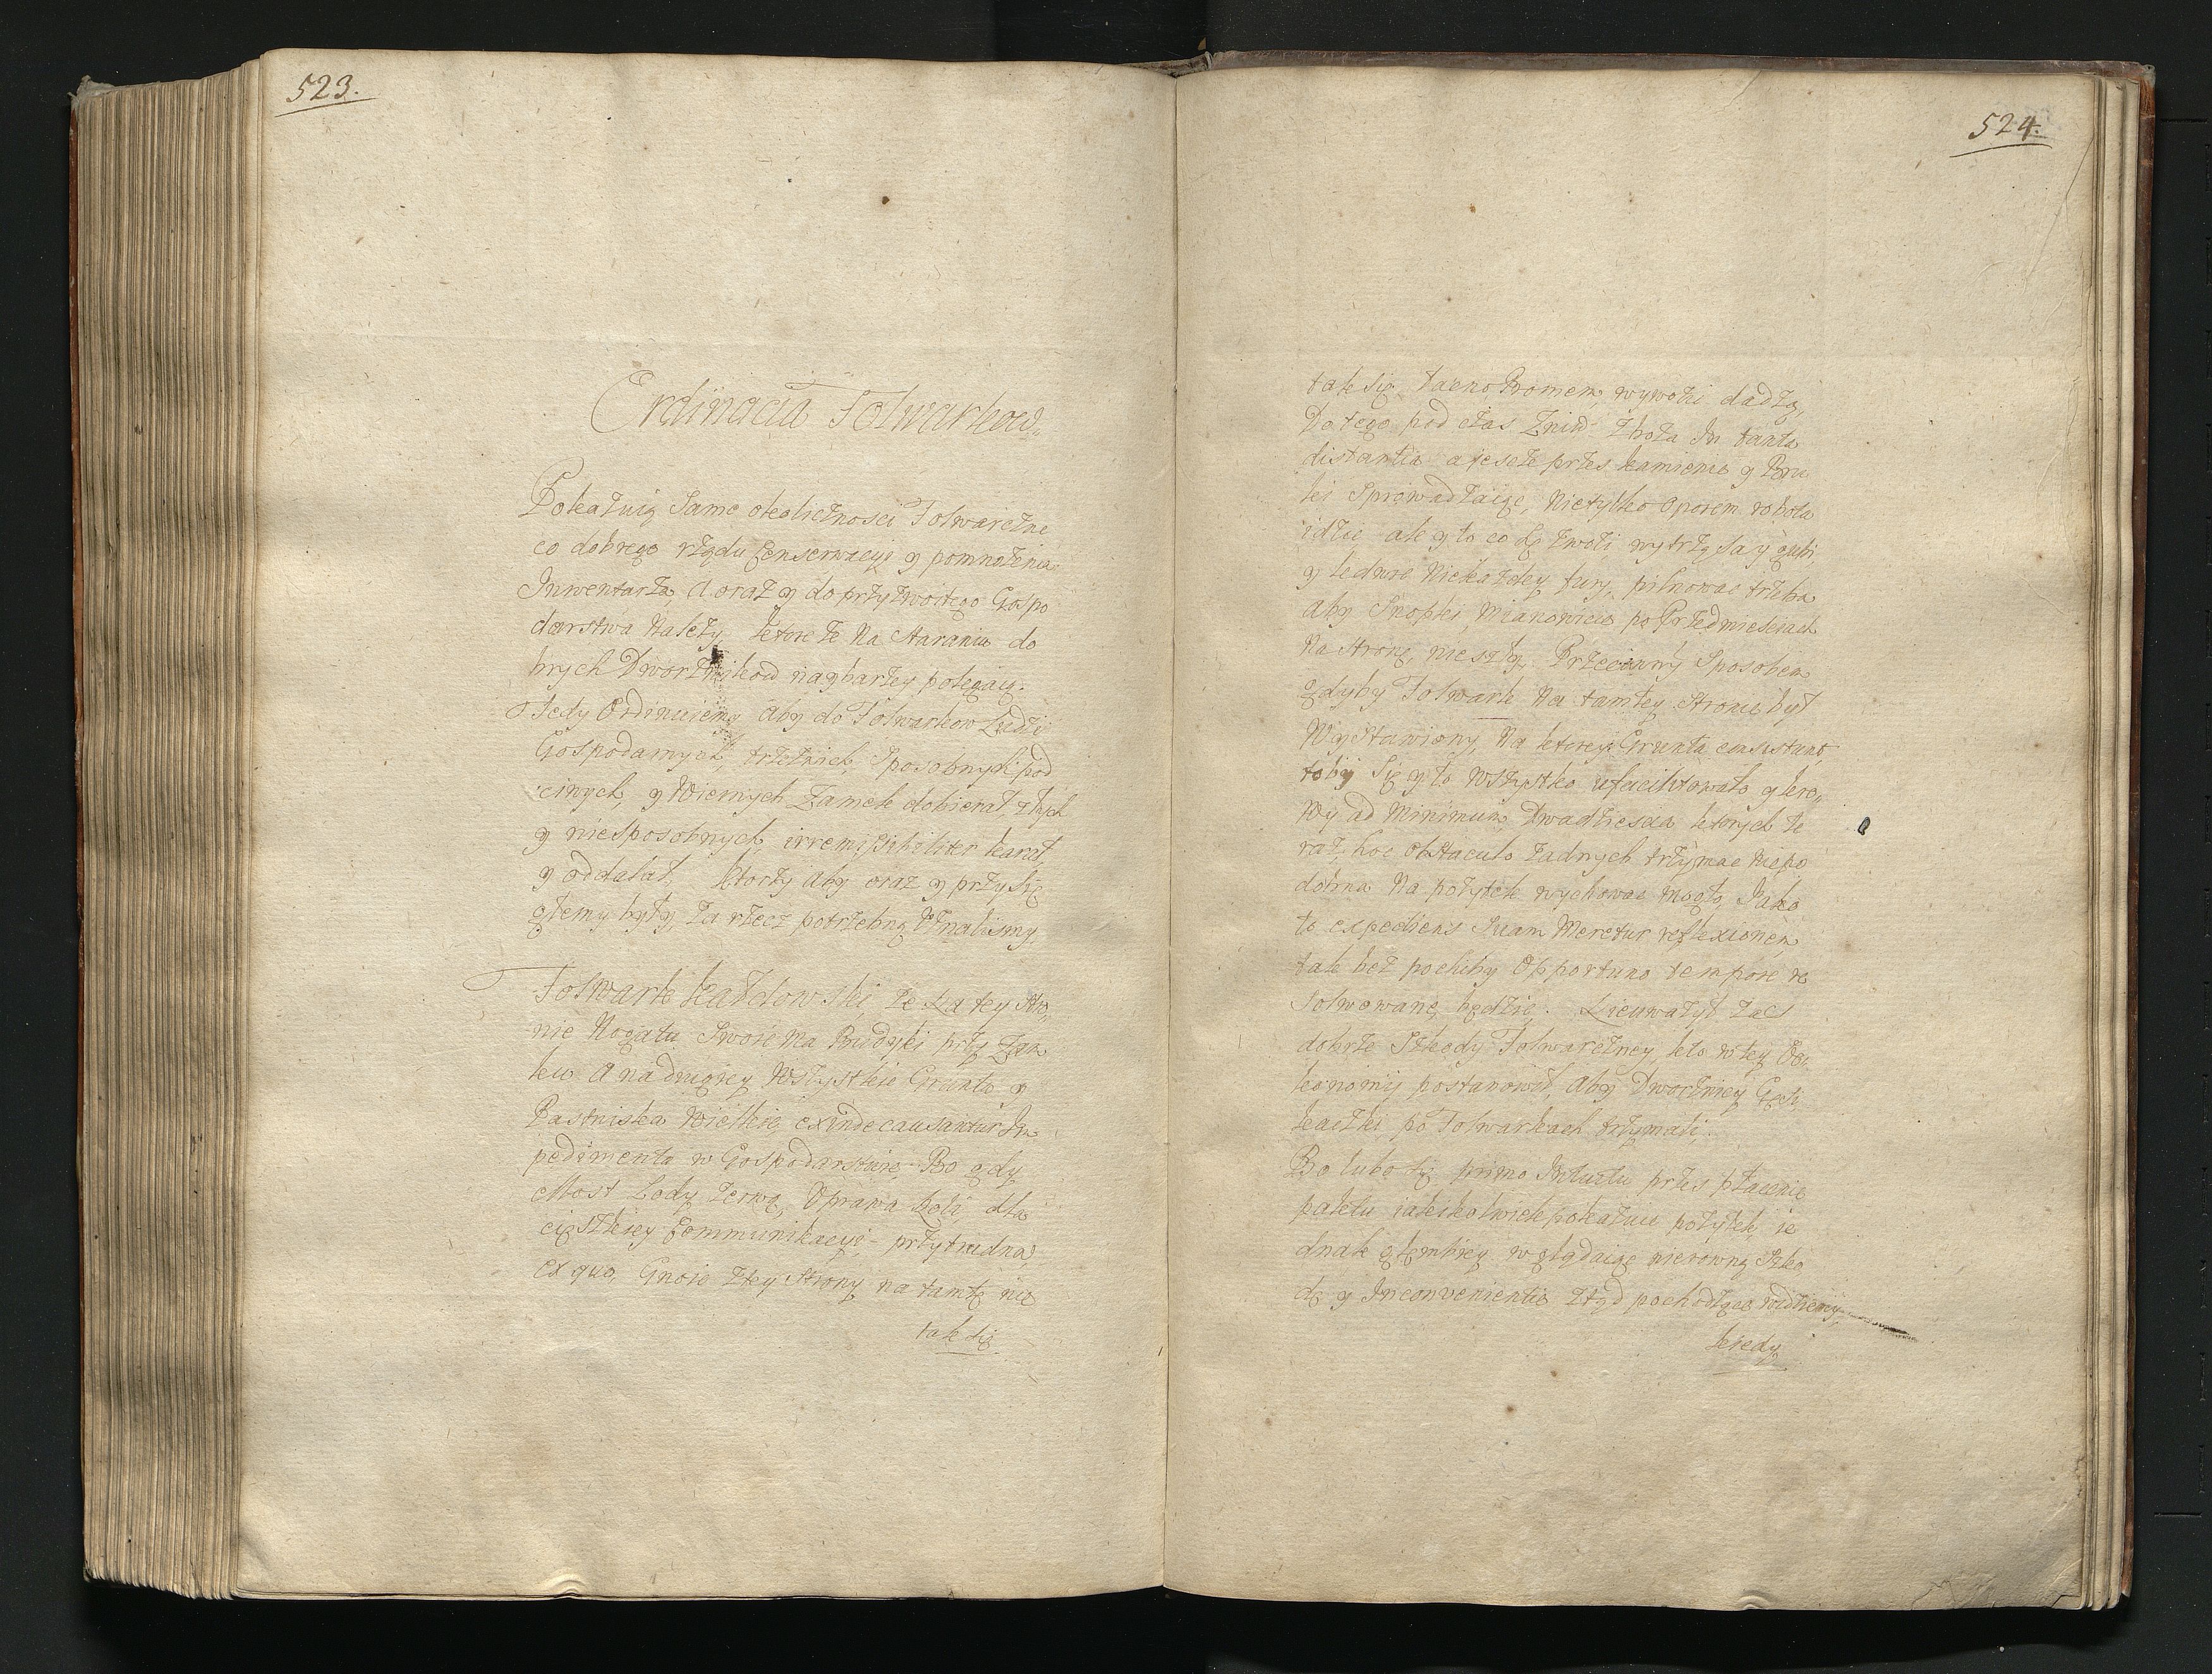 523.
Ordinacia Folwarkow.
Pokazuią Same okolicznosci Folwarczne
co dobrego rządu Conserwacyi y pomnożenia
Inwentarza, a oraz y do przyzwoitego Gospo
darstwa Należy, ktore że Na Staraniu do
brych Dworznikow naybarzey polegaią.
Tedy Ordinuiemy aby do Folwarkow Ludzi
Gospodarnych, trzeźwich, Sposobnych pod
ciwych, y Wiernych Zamek dobierał, złych
y niesposobnych, irremissibiliter karał,
y oddalał. Ktorzy aby oraz y przysię
głemy były, za rzecz potrzebną Uznalismy.
Folwark Kałdowski, że Na tey Stro„
nie Nogatu Swoie Ma Budynki przy Zam
ku. A na drugiey Wszystkie Grunta y
Pastwiska Wielkie, exinde causantur Im
pedimenta w Gospodarstwie. Bo gdy
Most Lody zerwą, Uprawa Roli, dla
cięszkiey Communikacyi przytrudna,
ex quo, Gnoie z tey Strony na tamtę nie
tak się
524.
tak się łacno Promem wywozic dadzą,
Do tego pod czas Zniw Zboża In tanta
distantia a ieszcze przes kamienie y Bru
ki Sprowadzaiąc, Nietylko oporem robota
idzie ale y to co się zwozi wytrzęsa y gubi,
y ledwie Niekażdey fury, pilnowac trzeba
aby Snopki, Mianowicie po Przedmiesciach
Na Stronę, nie szły. Przeciwny Sposobem
gdyby Folwark Na tamtey Stronie był
Wystawiony, Na ktorey Grunta consistunt,
toby Się y to Wszystko ufacilitowało y kro„
wy ad Minimum, Dwadziescia ktorych te
raz, hoc obstaculo żadnych trzymac Niepo
dobna Na pożytek wychowac mogło, Jako
to expediens Suam Meretur reflexionem,
tak bez pochiby Opportuno tempore re
solwowane będzie.
dobrze Szkody Folwarczney, kto w tey Oe„
konomij postanowił, aby Dwornicy Gęsi,
kaczki po Folwarkach trzymali.
Bo lubo się primo Intuitu przes płacenie
paketu iakiskolwiek pokazuie pożytek, ie
dnak głembiey w glądaiąc nierowną Szko
dę y Inconvenientie ztąd pochodzące widziemy,
kiedy